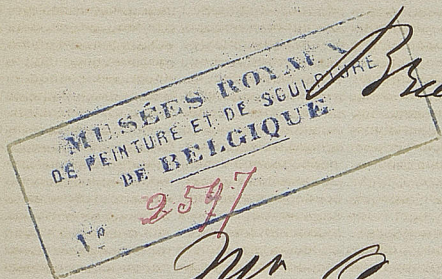 MUSÉES ROYAUX
DE PEINTURE ET DE SCULPTURE
DE BELGIQUE
N° 2597